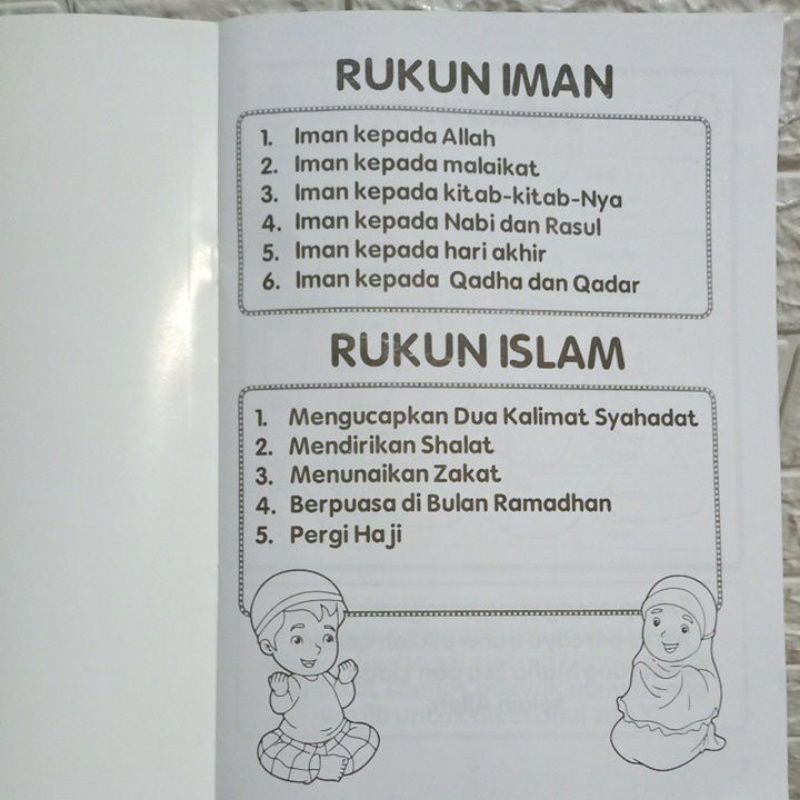 RUKUN IMAN
1. Iman kepada Allah
2. Iman kepada malaikat
3. Iman kepada kitab-kitab-Nya
4. Iman kepada Nabi dan Rasul
5. Iman kepada hari akhir
6. Iman kepada Qadha dan Qadar
RUKUN ISLAM
1. Mengucapkan Dua Kalimat Syahadat
2. Mendirikan Shalat
3. Menunaikan Zakat
4. Berpuasa di Bulan Ramadhan
5. Pergi Haji